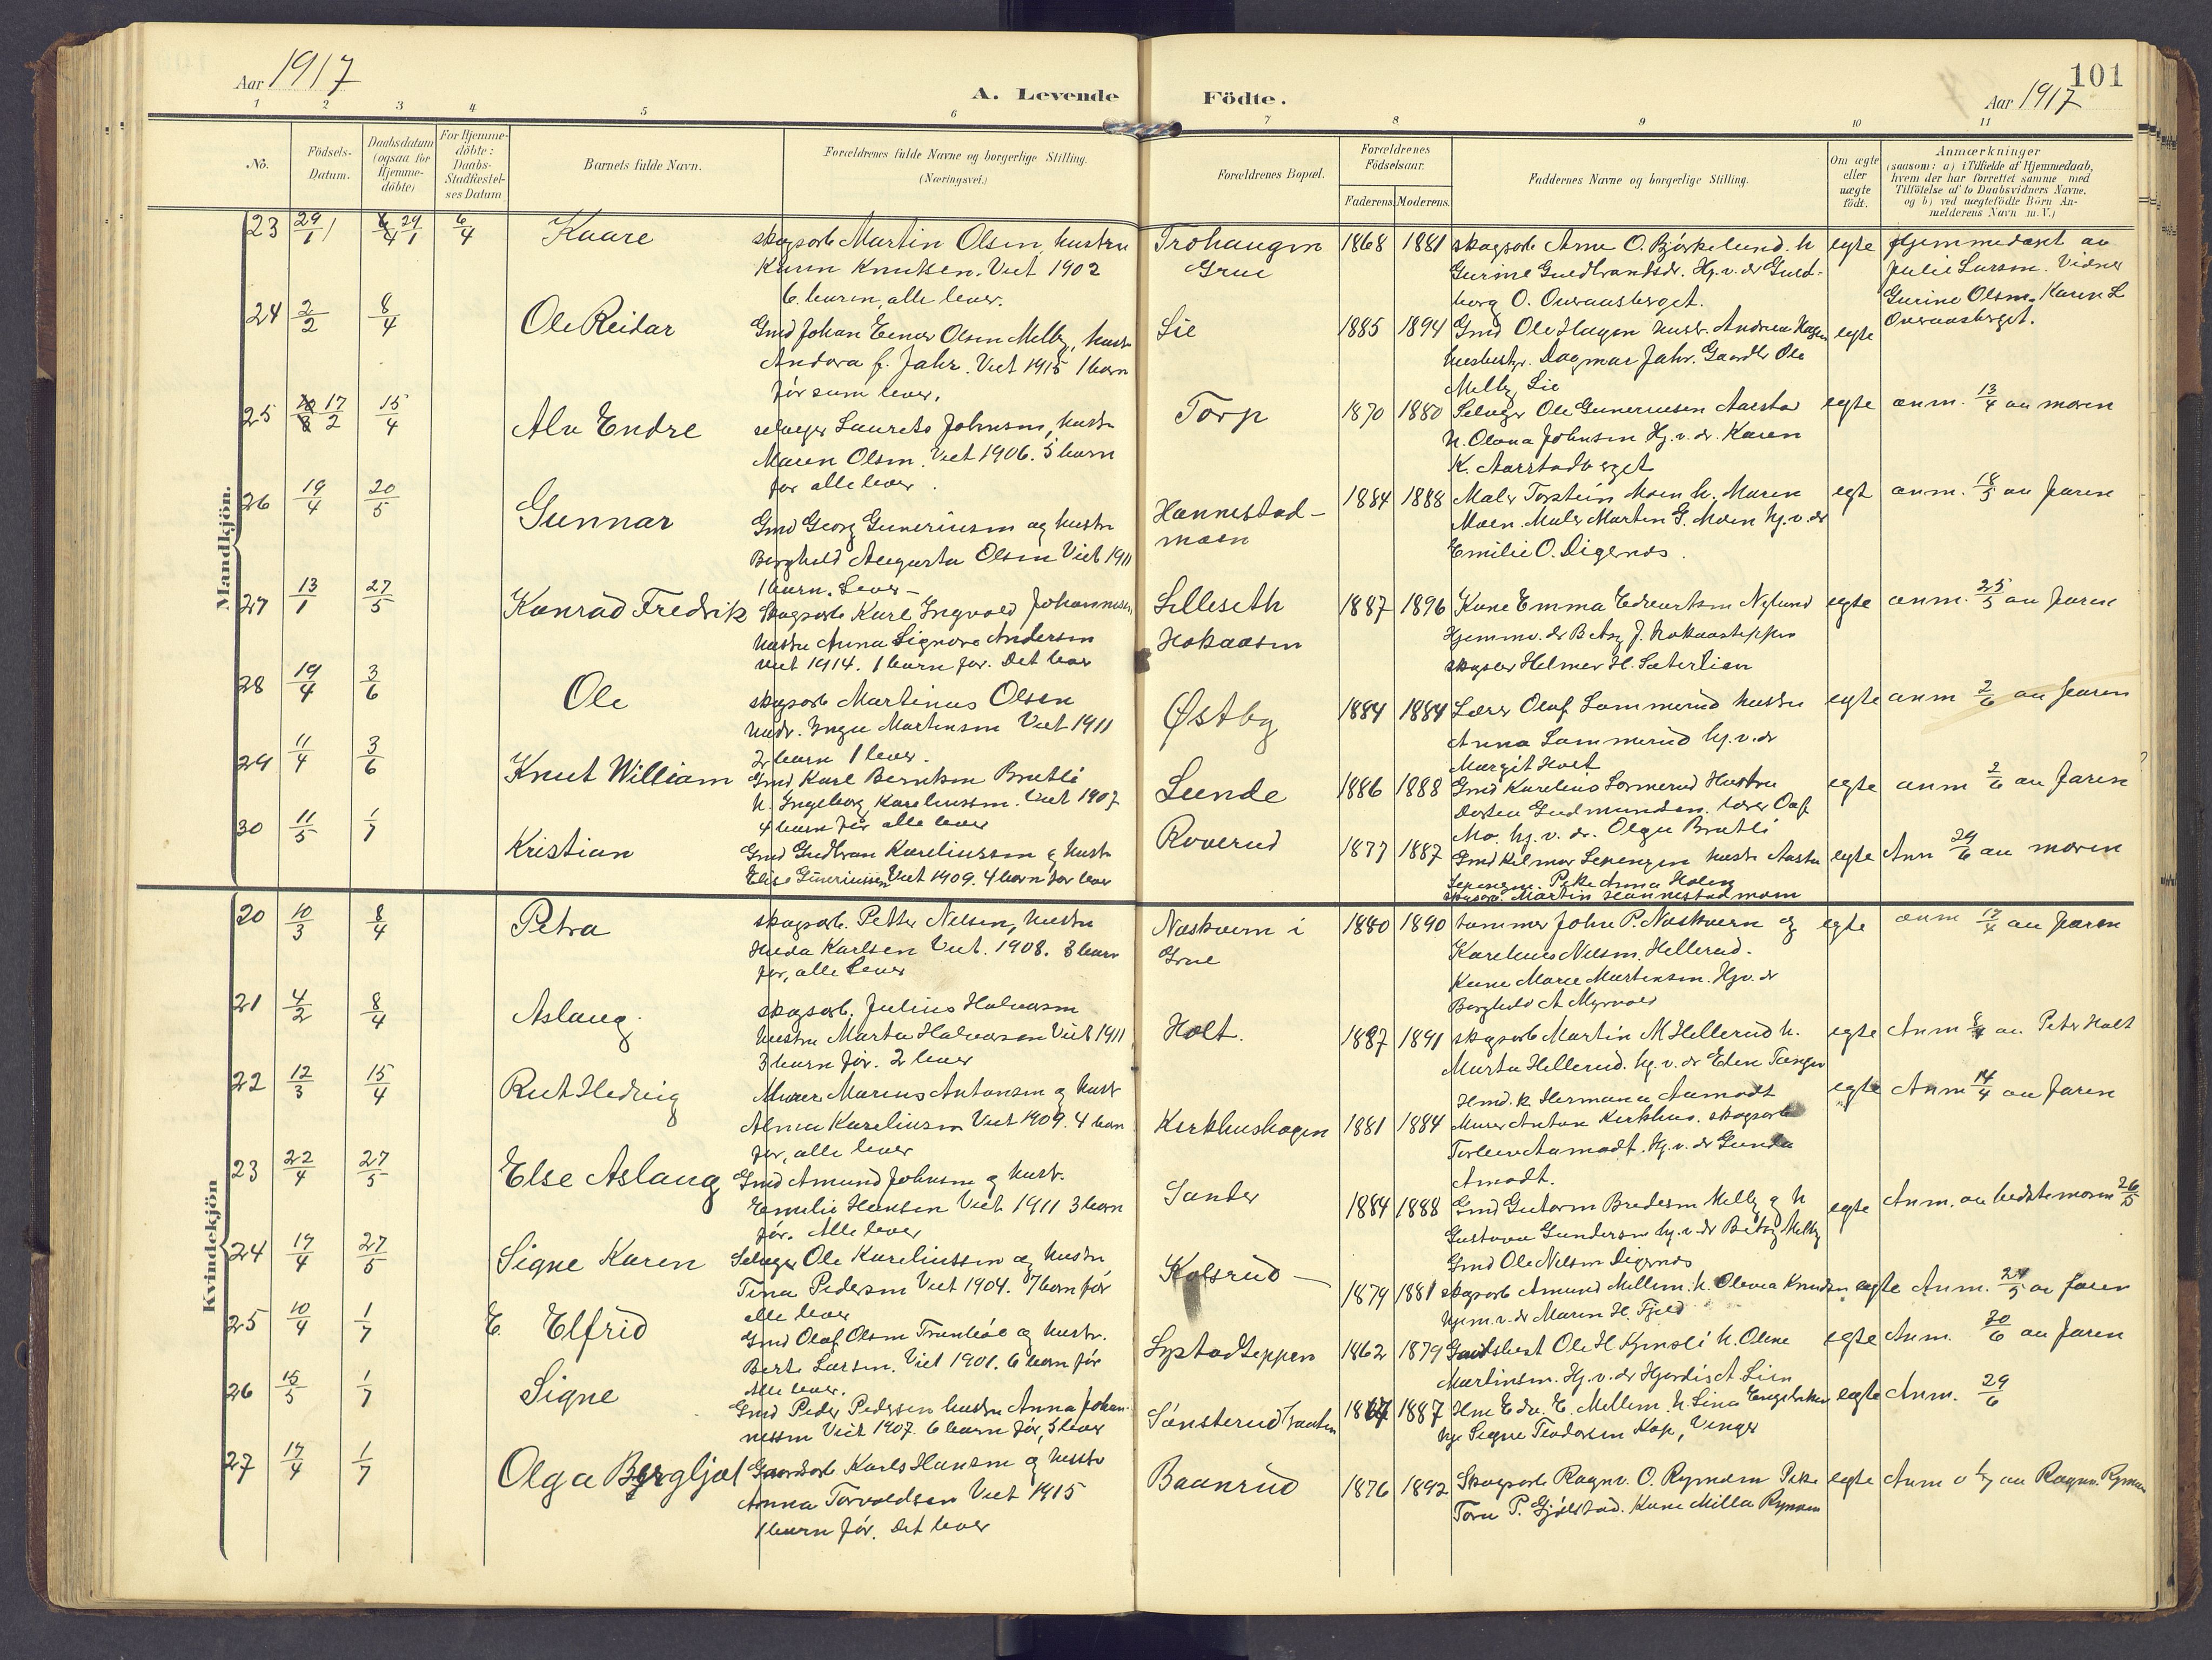 Aar 1917
A. Levende Födte.
101
Aar 1917
1 2 3 4 5 6 7 8 9 10 11
No.
Födsels-Datum.
Daabsdatum (ogsaa for Hjemme-döbte)
For Hjemme-döbte: Daabs-Stadfæstel-ses Datum
Barnets fulde Navn.
Forældrenes fulde Navne og borgerlige Stilling. (Næringsvei.)
Forældrenes Bopæl.
Forældrenes Födselsaar.
Faderens Moderens
Faddernes Navne og borgerlige Stilling.
Om ægte eller uægte födt.
Anmærkninger
(saasom: a) i Tilfælde af Hjemmedaab,
hvem der har forrettet samme med
Tilföielse af to Daabsvidners Navne.
og b) ved uegtefödte Börn An-
melderens Navn m. V.)
Mandkjön.
23 29/1 29/1 6/4 Kaare
skogsarb Martin Olsen, hustru
Karen Knutsen. Viet 1902
6 barn, alle lever.
Trohaugen
Grue
1868 1881
skogsarb Arne O. Björkelund. h
Gurine Guldbrandsdr. Hj. v. dr Guld-
borg O. Overaasberget.
egte
Hjemmedøpt av
Julie Larsen. Vidner
Gurine Olsen. Karen L
Overaasberget.
24 2/2 8/4 Ole Reidar
Gmd Johan Einar Olsen Melby, hustr
Andora f. Jahr. Viet 1915 1 barn
før som lever.
Lie
1885 1894
Gmd Ole Hagen hustr. Andrea Hagen
Dagmar Jahr. Ole
Melby Lie
egte
25 17/2 15/4 Alv Endre
selveier Laurits Johnsen, hustr
Maren Olsen. Viet 1906. 5 barn
før alle lever.
Torp
1870 1880
Selveier Ole Guneriussen Aarstad
h. Olava Johnsen Hj. v. dr. Karen
K. Aarstadberget
egte
anm. 13/4 av moren
26 19/4 20/5 Gunnar
Gmd Georg Guneriussen og hustru
Borghild Augusta Olsen Viet 1911
1 barn. Lever -
Hannestad-
moen
1884 1888
Maler Torstein Moen h. Maren
Moen. Maler Martin G. Moen hj. v. dr
Emilie O. Digernes.
egt
anm. 18/5 av faren
27 13/1 27/5 Konrad Fredrik
Skogsarb Karl Ingvald Johannesen
hustru Anna Signora Andersen
viet 1914. 1 barn før. Det lever
Lilleseth
Hokaasen
1887 1896
Kone Emma Edvartsen Nylund
Hjemmv. dr Betsy J. Hokaasteppen
skogsarb Helmer H. Sæterlien
egte
anm. 25/5 av faren
28 19/4 3/6 Ole
skogsarb Martinus Olsen
hustr. Inga Martinsen Viet 1911
2 barn 1 lever.
Østby
1884 1884
Lærer Olaf Sommerud hustru
Anna Sommerud hj. v. dr
Margit Holt
egte
anm 2/6 av faren
29 11/4 3/6 Knut William
Gmd Karl Berntsen Bratli
h. Ingeborg Kareliussen. Viet 1907
4 barn før alle lever
Lunde
1886 1888
Gmd Karelius Sormerud Hustru
Dorthea Gudmundsen. lærer Olaf
Mo. hj. v. dr. Olga Bratli
egte
anm 2/6 av faren
30 11/5 1/7 Kristian
Gmd Gudbran Kareliussen og hustr
Elise Guneriussen Viet 1909. 4 barn før lever
Roverud
1877 1887
Gmd Hilmar Lepengen hustr Aasta
Lepengen. Pike Anna Holen
skogsarb. Martin Hannestadmoen
egte
Anm 29/6 av moren
Kvindekjön
20 10/3 8/4 Petra
skogsarb. Petter Nilsen, hustru
Hilda Karlsen Viet. 1908. 3 barn
før, alle lever
Naskuern i
Grue
1880 1890
tømmer John P. Naskuern og
Karelius Nilsen. Hellerud.
Kone Marie Martinsen. Hj. v. dr
Borghild A Myrvold
egte
anm 17/4 av faren
21 4/2 8/4 Aslaug.
skogsarb. Julius Halvorsen
hustru Marta Halvorsen Viet 1911
3 barn før. 2 lever
Holt.
1887 1891
skogsarb Martin M Hellerud h.
Marta Hellerud. hj. v. dr Elen Tangen
egte
Anm 8/4 av Peter Holt
22 12/3 15/4 Rut Hedvig
Murer Marius Antonsen og hustr
Alma Kareliussen Viet 1909. 4 barn
før, alle lever
Kirkhushagen
1881 1884
Hmd. k Hermana Aamodt
Murer Anton Kirkhus. skogsarb
Torleiv Aamodt. Hj. v. dr Gunda
Amodt.
egte
Anm 14/4 av faren
23 22/4 27/5 Else Aslaug
Gmd Amund Johnsen og hustr.
Emilie Hansen Viet 1911 3 barn
før. Alle lever
Sander
1884 1888
Gmd Gutorm Bredesen Melby og h
Gustava Gundersen hj. v. dr Betsy Melby
Gmd Ole Nilsen Digernes
egte
Anm. av bedstemoren 26/5
24 17/4 27/5 Signe Karen
Selveger Ole Kareliussen og hustru
Tina Pedersen Viet 1904. 7 barn før
alle lever
Kolsrud -
1879 1881
skogsarb Amund Mellem. h. Olevia Knudsen
hjem. v. dr Maren H. Fjeld
egte
Anm. 24/5 av faren
25 10/4 1/7 E. Elfrid
Gmd Olaf Olsen og hustr.
Berte Larsen. Viet 1901. 6 barn før
Alle lever.
Lystadteppen
1862 1879
Ole H Kjensli h. Oline
Martinsen. Hj. v. dr Hjordis A. Lien
egte
Anm. 30/6 av faren
26 15/5 1/7 Signe
Gmd Peder Pedersen hustru Anna Johan-
nessen Viet 1907. 6 barn før, 5 lever
Sønsterud
1887
E. Mellem. h. Lina Engebretsen
Signe Teodorsen Kop, Vinger
egte
Anm. 29/6
27 17/4 1/7 Olga Bergljot
Gaardsarb Karls Hansen og hustru
Anna Torvaldsen Viet 1915
1 barn før. Det lever
Baanrud
1876 1892
Skogsarb Ragnv. O. Rymoen Pike
Tora P. Gjølstad. Kone Milla Rymoen
egte
Anm 1/7 av Ragnv. Rymoen